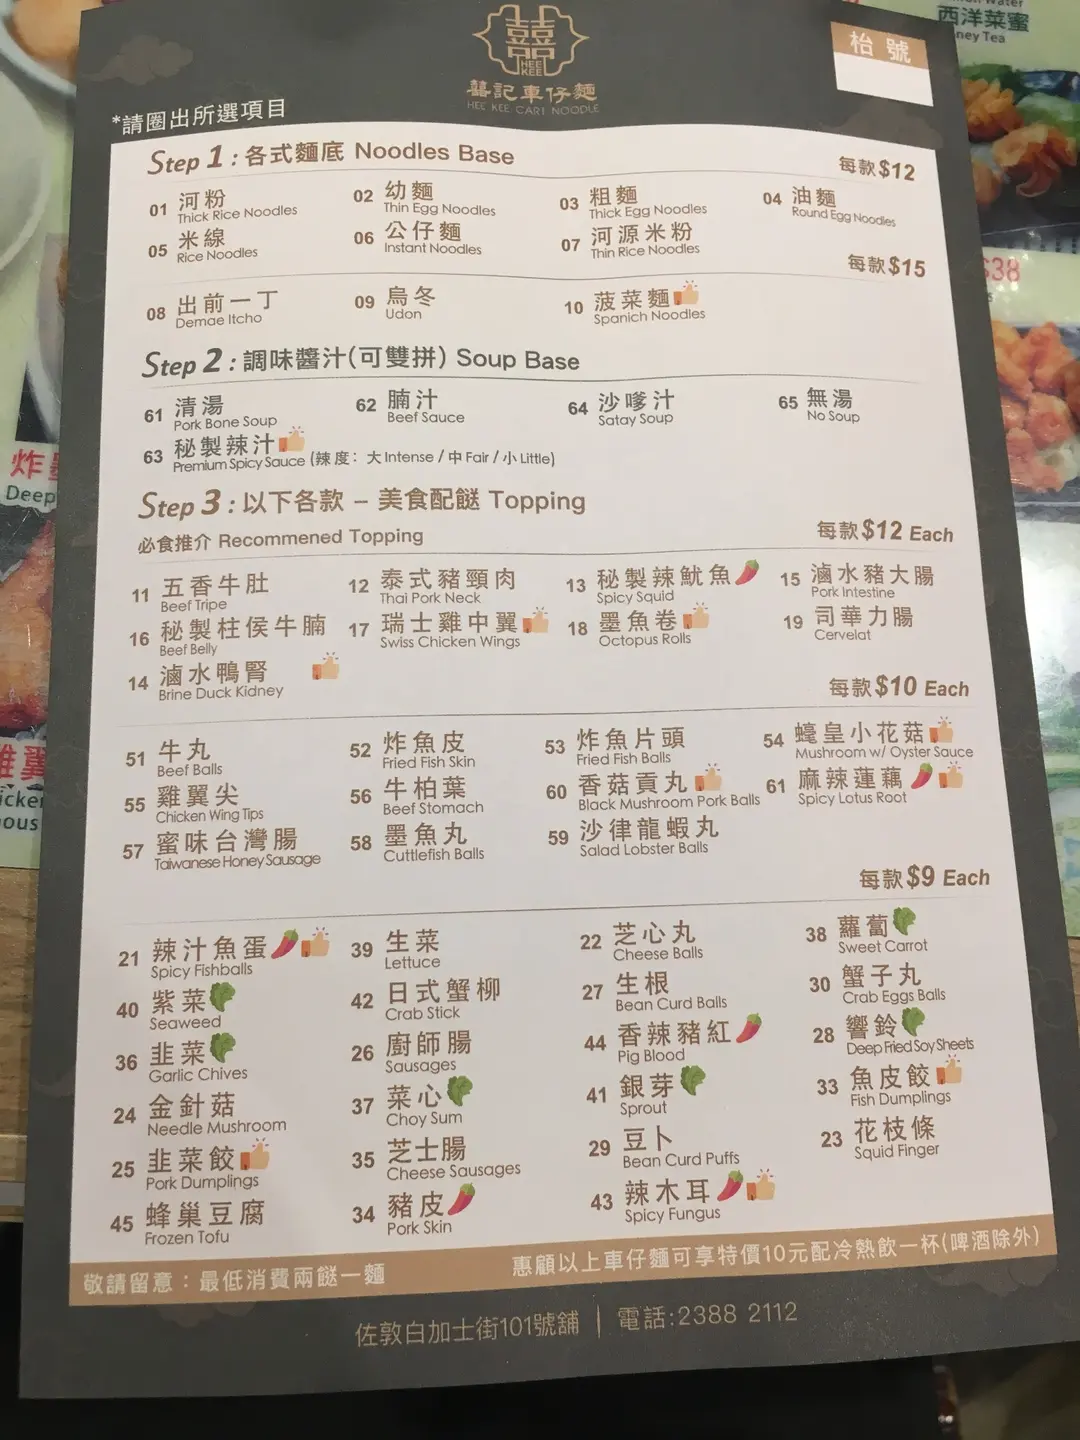 西洋菜蜜
ney Tea
囍
HEE
KEE
囍記車仔麵
HEE KEE CART NOODLE
枱號
*請圈出所選項目
Step 1 : 各式麵底 Noodles Base
每款$12
01 河粉 Thick Rice Noodles
02 幼麵 Thin Egg Noodles
03 粗麵 Thick Egg Noodles
04 油麵 Round Egg Noodles
05 米線 Rice Noodles
06 公仔麵 Instant Noodles
07 河源米粉 Thin Rice Noodles
每款$15
08 出前一丁 Demae Itcho
09 烏冬 Udon
10 菠菜麵 Spanich Noodles
Step 2 : 調味醬汁(可雙拼) Soup Base
61 清湯 Pork Bone Soup
62 腩汁 Beef Sauce
64 沙嗲汁 Satay Soup
65 無湯 No Soup
63 秘製辣汁 Premium Spicy Sauce (辣度：大 Intense / 中 Fair / 小 Little)
Step 3 : 以下各款 – 美食配餸 Topping
必食推介 Recommened Topping
每款$12 Each
11 五香牛肚 Beef Tripe
12 泰式豬頸肉 Thai Pork Neck
13 秘製辣魷魚 Spicy Squid
15 滷水豬大腸 Pork Intestine
16 秘製柱侯牛腩 Beef Belly
17 瑞士雞中翼 Swiss Chicken Wings
18 墨魚卷 Octopus Rolls
19 司華力腸 Cervelat
14 滷水鴨腎 Brine Duck Kidney
每款$10 Each
51 牛丸 Beef Balls
52 炸魚皮 Fried Fish Skin
53 炸魚片頭 Fried Fish Balls
54 蠔皇小花菇 Mushroom w/ Oyster Sauce
55 雞翼尖 Chicken Wing Tips
56 牛柏葉 Beef Stomach
60 香菇貢丸 Black Mushroom Pork Balls
61 麻辣蓮藕 Spicy Lotus Root
57 蜜味台灣腸 Taiwanese Honey Sausage
58 墨魚丸 Cuttlefish Balls
59 沙律龍蝦丸 Salad Lobster Balls
每款$9 Each
21 辣汁魚蛋 Spicy Fishballs
39 生菜 Lettuce
22 芝心丸 Cheese Balls
38 蘿蔔 Sweet Carrot
40 紫菜 Seaweed
42 日式蟹柳 Crab Stick
27 生根 Bean Curd Balls
30 蟹子丸 Crab Eggs Balls
36 韭菜 Garlic Chives
26 廚師腸 Sausages
44 香辣豬紅 Pig Blood
28 響鈴 Deep Fried Soy Sheets
24 金針菇 Needle Mushroom
37 菜心 Choy Sum
41 銀芽 Sprout
33 魚皮餃 Fish Dumplings
25 韭菜餃 Pork Dumplings
35 芝士腸 Cheese Sausages
29 豆卜 Bean Curd Puffs
23 花枝條 Squid Finger
45 蜂巢豆腐 Frozen Tofu
34 豬皮 Pork Skin
43 辣木耳 Spicy Fungus
敬請留意：最低消費兩餸一麵
惠顧以上車仔麵可享特價10元配冷熱飲一杯(啤酒除外)
佐敦白加士街101號舖 | 電話:2388 2112
$38
炸
Deep
雞翼